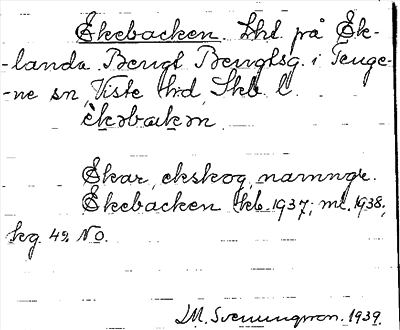 Ekebacken. Shl på Ek-
-landa Bengt Bengtsg. i Tenge-
-ne sn, Viste hd, Skb. l.
èkəbakən
Ekar, ekskog, namngr.
Ekebacken kb. 1937; ml. 1938,
kg. 49 NO.
M. Svenungsson. 1939.